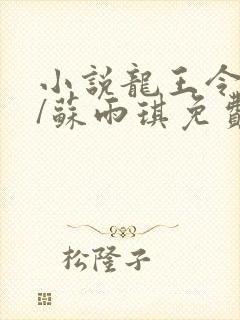 小說龍王令
/蘇雨琪免費
松隆子